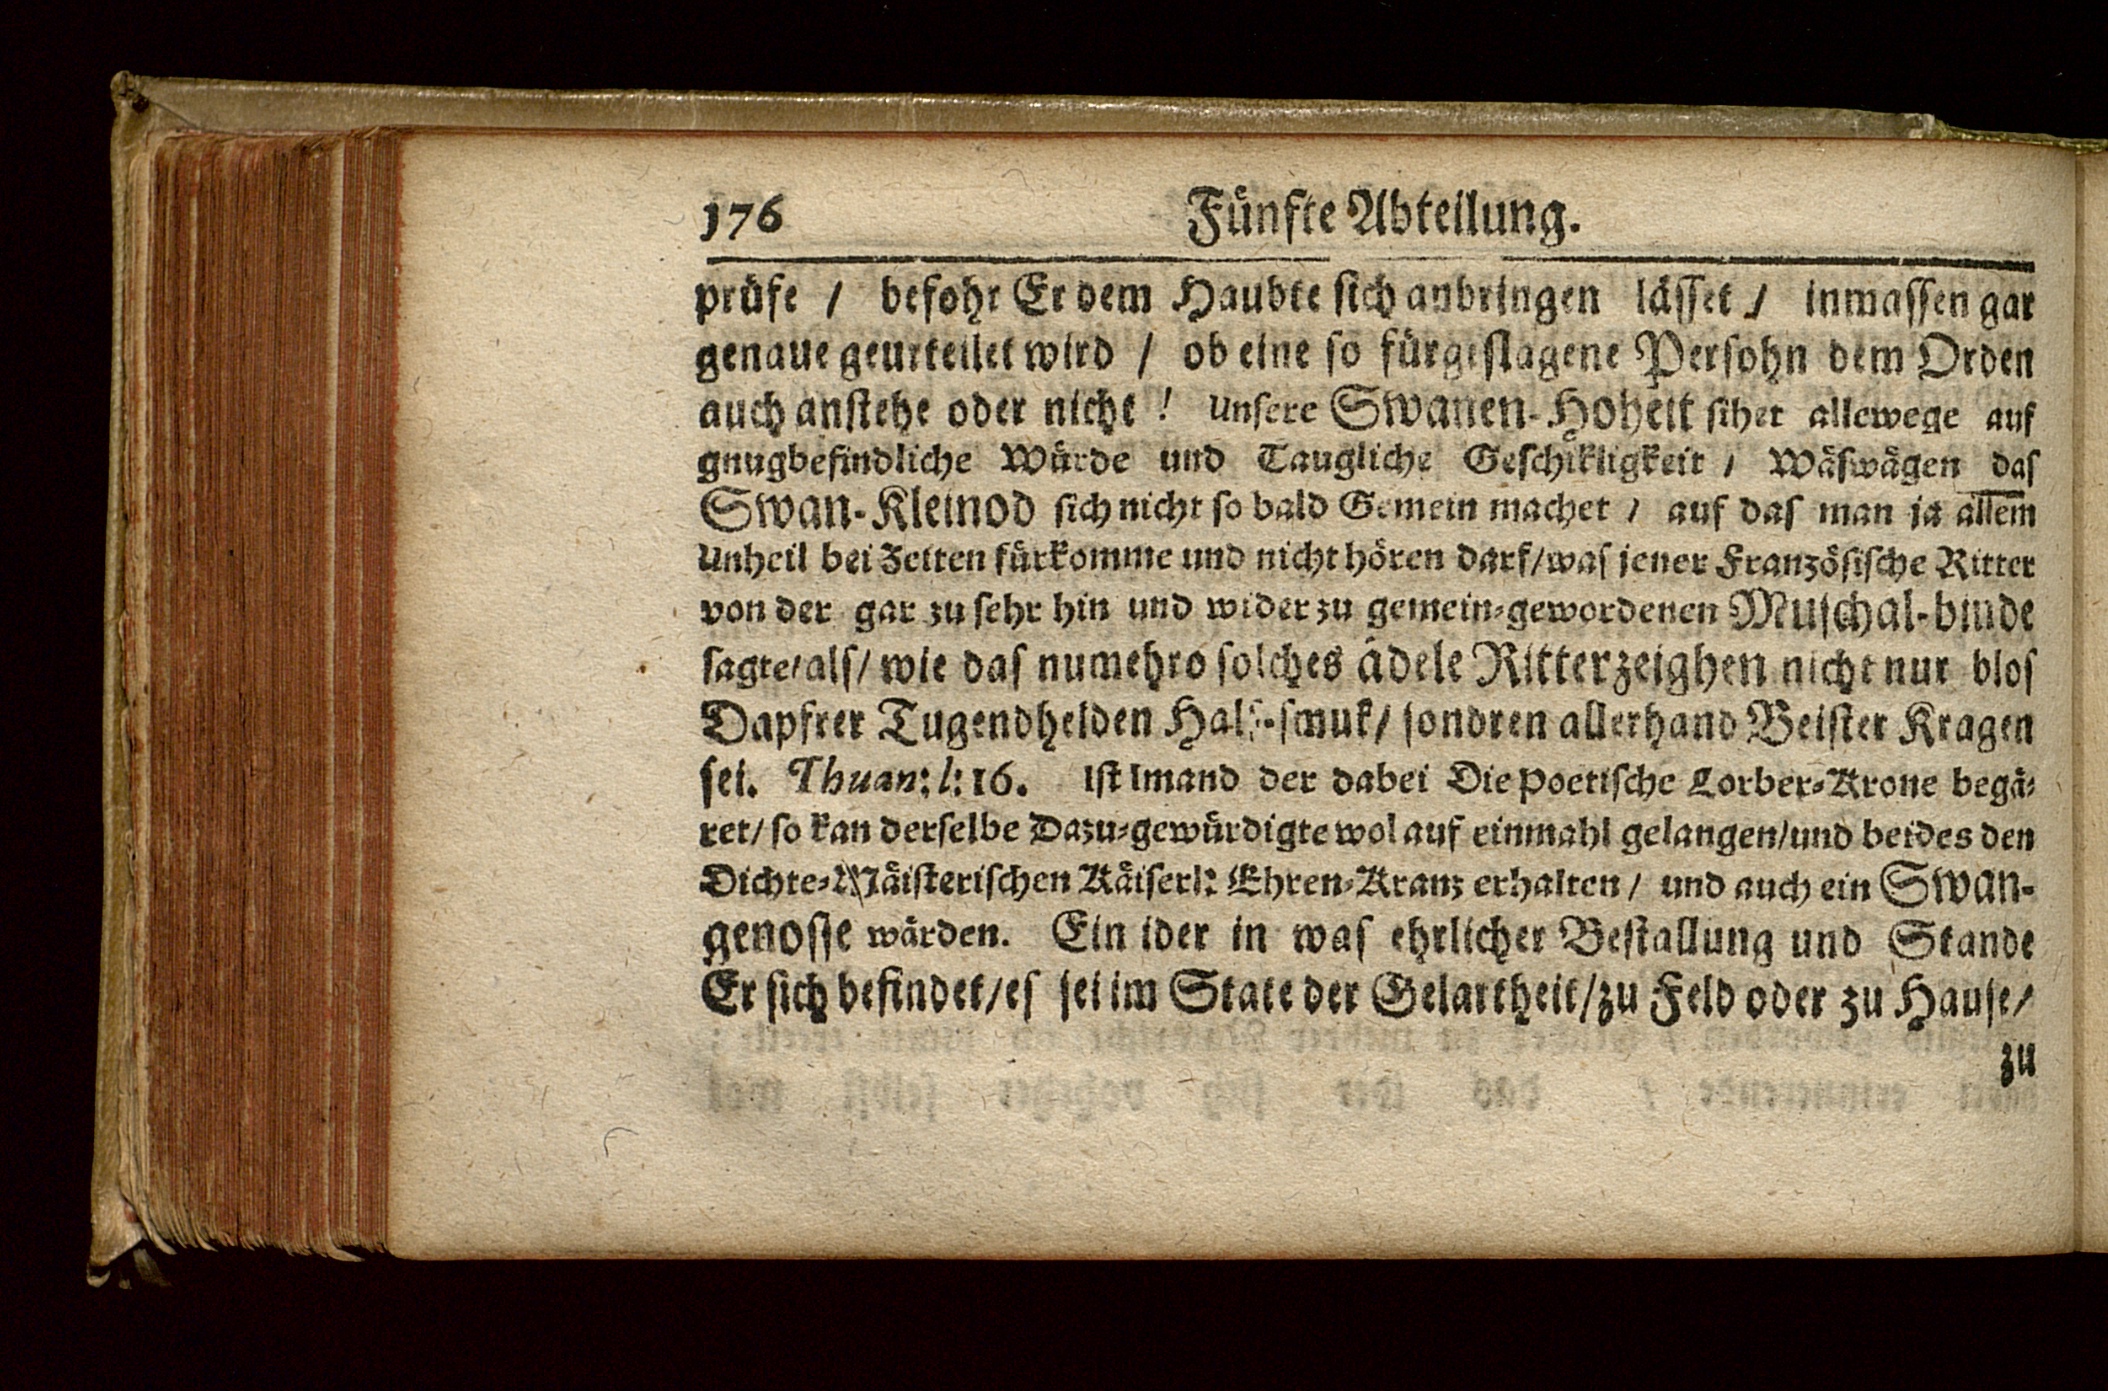 176 Fünfte Abteilung.
prüfe / befohr Er dem Haubte sich anbringen lässet / inmassen gar
genaue geurteilet wird / ob eine so fürgeslagene Persohn dem Orden
auch anstehe oder nicht! Unsere Swanen-Hoheit sihet allewege auf
gnugbefindliche Würde und Taugliche Geschikligkeit / Wäswägen das
Swan-Kleinod sich nicht so bald Gemein machet / auf das man ja allem
Unheil bei Zeiten fürkomme und nicht hören darf/was jener Französische Ritter
von der gar zu sehr hin und wider zu gemein-gewordenen Muschal-binde
sagte/als/ wie das numehro solches ädele Ritterzeighen nicht nur blos
Dapfrer Tugendhelden Hals-smuk/ sondren allerhand Beister Kragen
sei. Thuan: l: 16. Ist Imand der dabei Die Poetische Lorber-Krone begä-
ret/ so kan derselbe Dazu-gewürdigte wol auf einmahl gelangen/und beides den
Dichte-Mäisterischen Käiserl: Ehren-Kranz erhalten / und auch ein Swan-
genosse wärden. Ein ider in was ehrlicher Bestallung und Stande
Er sich befindet/es sei im State der Gelartheit/zu Feld oder zu Hause/
zu